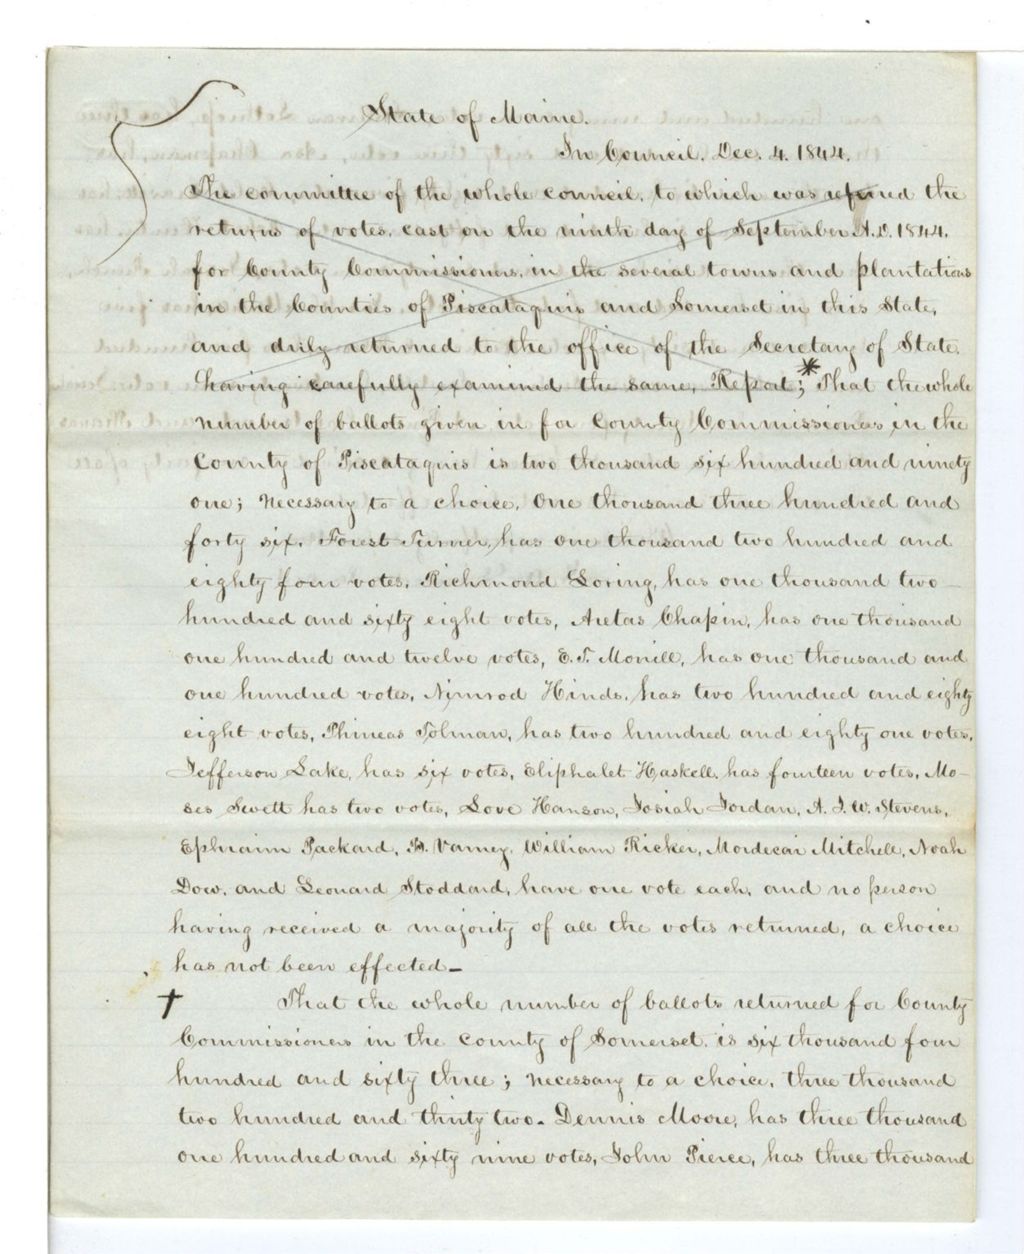 State of Maine.
In Council. Dec. 4. 1844.
The committee of the whole council, to which was referred the
returns of votes, cast on the ninth day of September A.D. 1844,
for County Commissioners, in the several towns and plantations
in the Counties of Piscataquis and Somerset in this State,
and duly returned to the office of the Secretary of State,
having carefully examined the same, Report; * That the whole
number of ballots given in for County Commissioners in the
County of Piscataquis is two thousand six hundred and ninety
one; necessary to a choice, one thousand three hundred and
forty six. Forest Turner, has one thousand two hundred and
eighty four votes, Richmond Loring, has one thousand two
hundred and sixty eight votes, Aretas Chapin, has one thousand
one hundred and twelve votes, E. T. Morrill, has one thousand and
one hundred votes, Nimrod Hinds, has two hundred and eighty
eight votes, Phineas Tolman, has two hundred and eighty one votes,
Jefferson Lake, has six votes, Eliphalet Haskell, has fourteen votes, Mo-
ses Swett has two votes, Love Hanson, Josiah Jordan, A. J. W. Stevens,
Ephraim Packard, B. Varney, William Ricker, Mordecai Mitchell, Noah
Dow, and Leonard Stoddard, have one vote each, and no person
having received a majority of all the votes returned, a choice
has not been effected_
† That the whole number of ballots returned for County
Commissioners in the county of Somerset, is six thousand four
hundred and sixty three; necessary to a choice, three thousand
two hundred and thirty two. Dennis Moore, has three thousand
one hundred and sixty nine votes, John Pierce, has three thousand